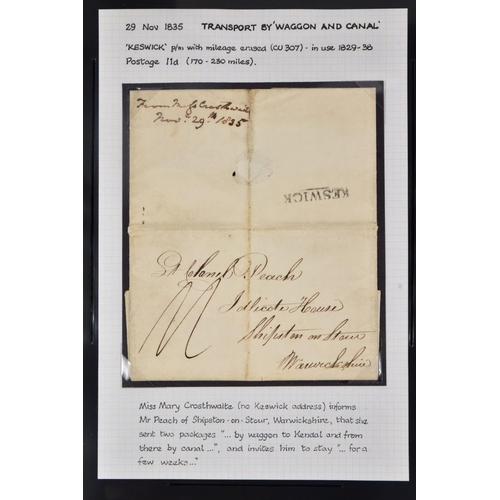 29 Nov 1835 TRANSPORT BY 'WAGGON AND CANAL'
'KESWICK' p/m with mileage erased (CU 307) - in use 1829-38
Postage 11d (170 - 230 miles).
From M Crosthwaite
Nov. 29th 1835
KESWICK
Lt Colonel Peach
Idlicote House
Shipston on Stour
Warwickshire
Miss Mary Crosthwaite (no Keswick address) informs
Mr Peach of Shipston-on-Stour, Warwickshire, that she
sent two packages "... by waggon to Kendal and from
there by canal ...", and invites him to stay "... for a
few weeks..."